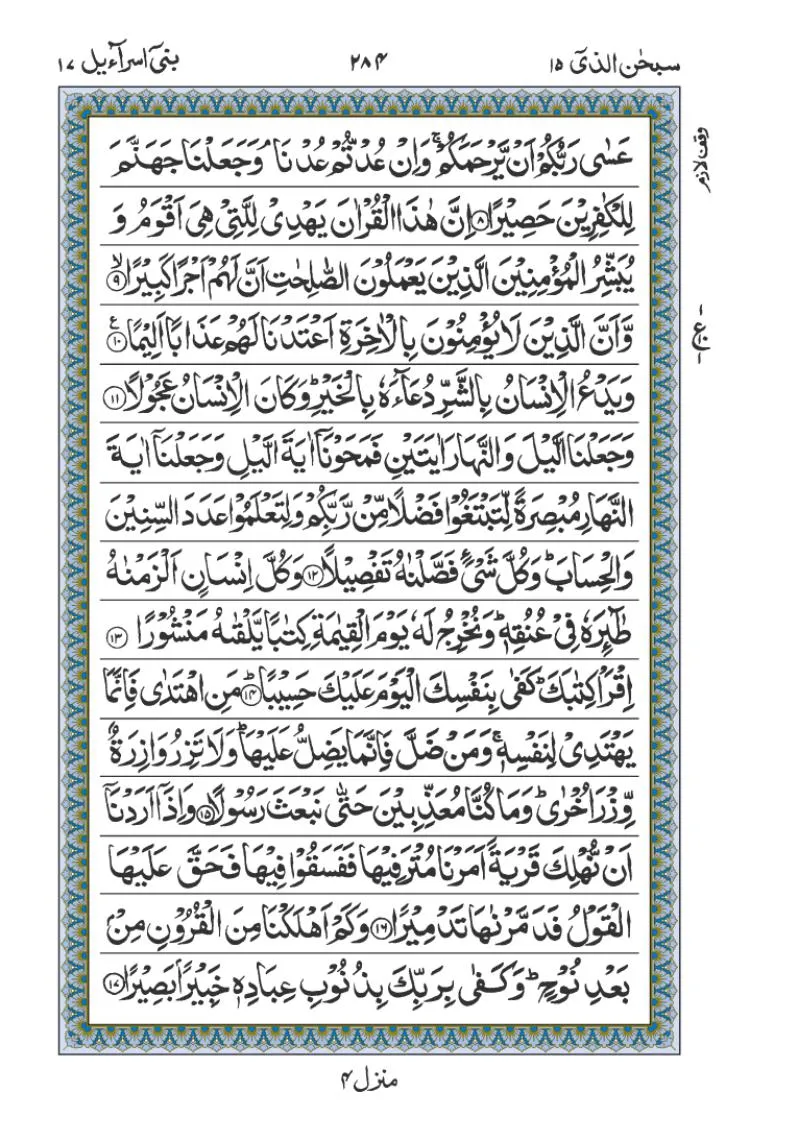 سبحٰن الذیٓ ١٥
٢٨۴
بنیٓ اسرآءیل ١٧
عَسٰى رَبُّكُمْ اَنْ يَّرْحَمَكُمْ ۚ وَاِنْ عُدْتُّمْ عُدْنَا ۘ وَجَعَلْنَا جَهَنَّمَ
لِلْكٰفِرِيْنَ حَصِيْرًا ﴿٨﴾ اِنَّ هٰذَا الْقُرْاٰنَ يَهْدِىْ لِلَّتِىْ هِىَ اَقْوَمُ وَ
يُبَشِّرُ الْمُؤْمِنِيْنَ الَّذِيْنَ يَعْمَلُوْنَ الصّٰلِحٰتِ اَنَّ لَهُمْ اَجْرًا كَبِيْرًا ۙ﴿٩﴾
وَّاَنَّ الَّذِيْنَ لَا يُؤْمِنُوْنَ بِالْاٰخِرَةِ اَعْتَدْنَا لَهُمْ عَذَابًا اَلِيْمًا ﴿١٠﴾ ع
وَيَدْعُ الْاِنْسَانُ بِالشَّرِّ دُعَآءَهٗ بِالْخَيْرِ ؕ وَكَانَ الْاِنْسَانُ عَجُوْلًا ﴿١١﴾
وَجَعَلْنَا الَّيْلَ وَالنَّهَارَ اٰيَتَيْنِ فَمَحَوْنَاۤ اٰيَةَ الَّيْلِ وَجَعَلْنَاۤ اٰيَةَ
النَّهَارِ مُبْصِرَةً لِّتَبْتَغُوْا فَضْلًا مِّنْ رَّبِّكُمْ وَلِتَعْلَمُوْا عَدَدَ السِّنِيْنَ
وَالْحِسَابَ ؕ وَكُلَّ شَىْءٍ فَصَّلْنٰهُ تَفْصِيْلًا ﴿١٢﴾ وَكُلَّ اِنْسَانٍ اَلْزَمْنٰهُ
طٰٓئِرَهٗ فِىْ عُنُقِهٖ ؕ وَنُخْرِجُ لَهٗ يَوْمَ الْقِيٰمَةِ كِتٰبًا يَّلْقٰىهُ مَنْشُوْرًا ﴿١٣﴾
اِقْرَاْ كِتٰبَكَ ؕ كَفٰى بِنَفْسِكَ الْيَوْمَ عَلَيْكَ حَسِيْبًا ؕ﴿١٤﴾ مَنِ اهْتَدٰى فَاِنَّمَا
يَهْتَدِىْ لِنَفْسِهٖ ۚ وَمَنْ ضَلَّ فَاِنَّمَا يَضِلُّ عَلَيْهَا ؕ وَلَا تَزِرُ وَازِرَةٌ
وِّزْرَ اُخْرٰى ؕ وَمَا كُنَّا مُعَذِّبِيْنَ حَتّٰى نَبْعَثَ رَسُوْلًا ﴿١٥﴾ وَاِذَاۤ اَرَدْنَاۤ
اَنْ نُّهْلِكَ قَرْيَةً اَمَرْنَا مُتْرَفِيْهَا فَفَسَقُوْا فِيْهَا فَحَقَّ عَلَيْهَا
الْقَوْلُ فَدَمَّرْنٰهَا تَدْمِيْرًا ﴿١٦﴾ وَكَمْ اَهْلَكْنَا مِنَ الْقُرُوْنِ مِنْۢ
بَعْدِ نُوْحٍ ؕ وَكَفٰى بِرَبِّكَ بِذُنُوْبِ عِبَادِهٖ خَبِيْرًاۢ بَصِيْرًا ﴿١٧﴾
وقف لازم
منزل ۴